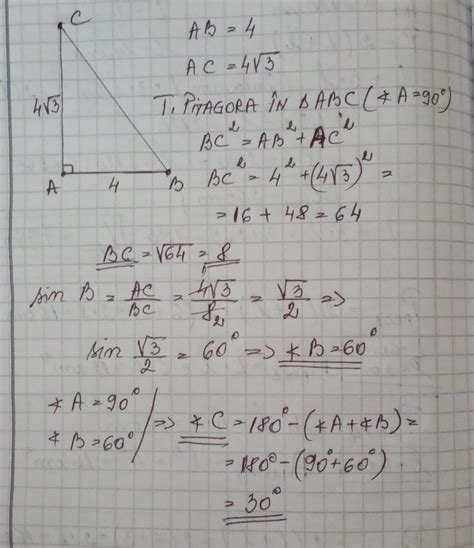 C
AB = 4
AC = 4√3
4√3
T. PITAGORA ÎN ΔABC (∢A=90°)
BC² = AB² + AC²
A
4
B
BC² = 4² + (4√3)² =
= 16 + 48 = 64
BC = √64 = 8
sin B = AC/BC = 4√3/8₂ = √3/2 =>
sin √3/2 = 60° => ∢B = 60°
∢A = 90°
∢B = 60°
=> ∢C = 180° - (∢A + ∢B) =
= 180° - (90° + 60°)
= 30°